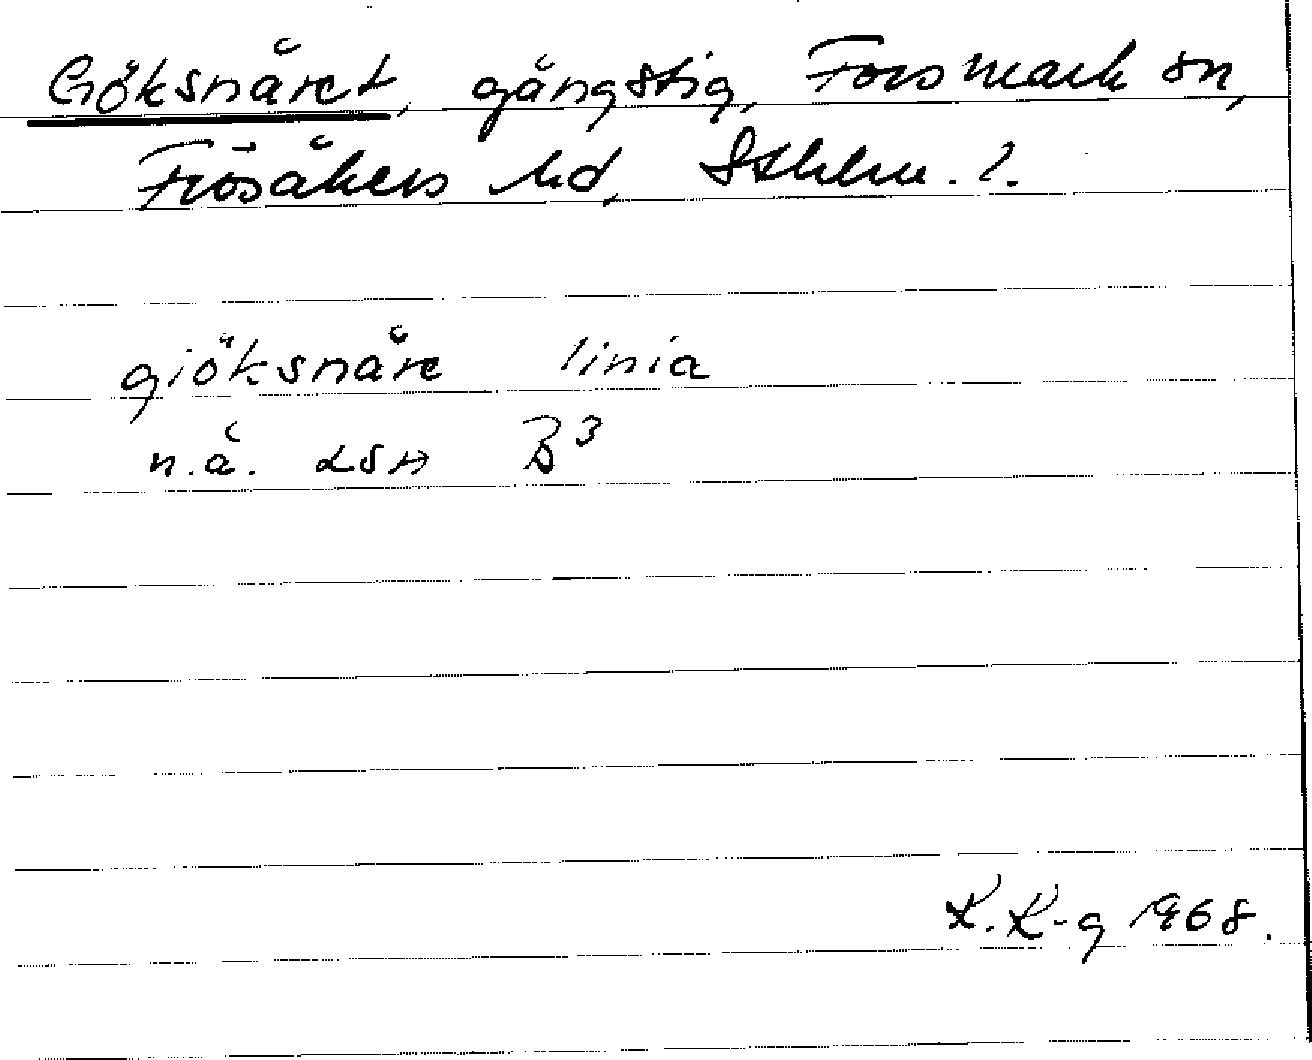 Göksnåret, gångstig, Forsmark sn,
Frösåkers hd, Sthlm. l.
giöksnåre linia
n.å. LSA B³
K. K-g 1968.